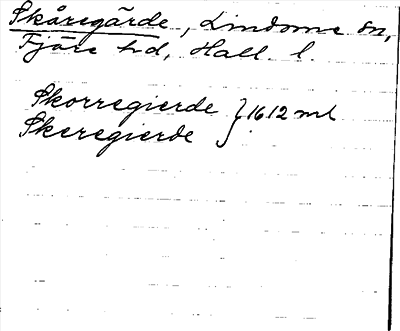 Skåregärde, Lindome sn,
Fjäre hd, Hall. l.
Skorregierde } 1612 ml
Skeregierde